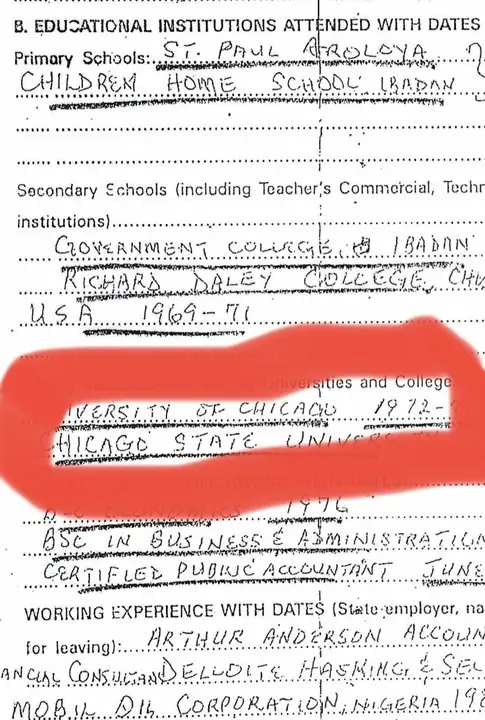 B. EDUCATIONAL INSTITUTIONS ATTENDED WITH DATES
Primary Schools: ST. PAUL AROLOYA
CHILDREN HOME SCHOOL IBADAN
Secondary Schools (including Teacher's Commercial, Techn
institutions)
GOVERNMENT COLLEGE, IBADAN
RICHARD DALEY COLLEGE, CHI
USA 1969-71
Universities and College
IVERSITY OF CHICAGO 1972-
CHICAGO STATE UNIVER
ECONOMICS 1976
BSC IN BUSINESS & ADMINISTRATION
CERTIFIED PUBLIC ACCOUNTANT JUNE
WORKING EXPERIENCE WITH DATES (State employer, na
for leaving): ARTHUR ANDERSON ACCOUN
ANCIAL CONSULTANT DELLOITE HASKING & SEL
MOBIL OIL CORPORATION, NIGERIA 198